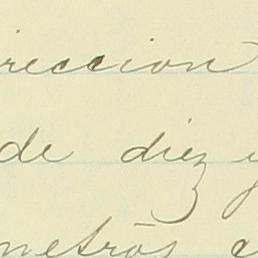 reccion
de diez y
metros c